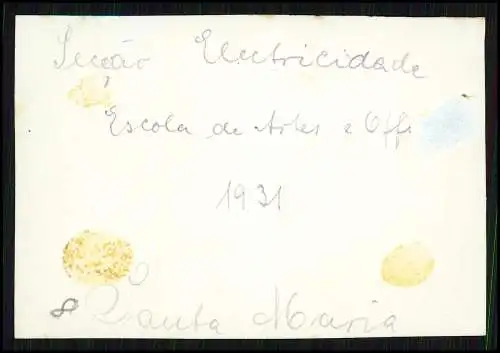 Secção Electricidade
Escola de Artes e Off.
1931
8 Santa Maria